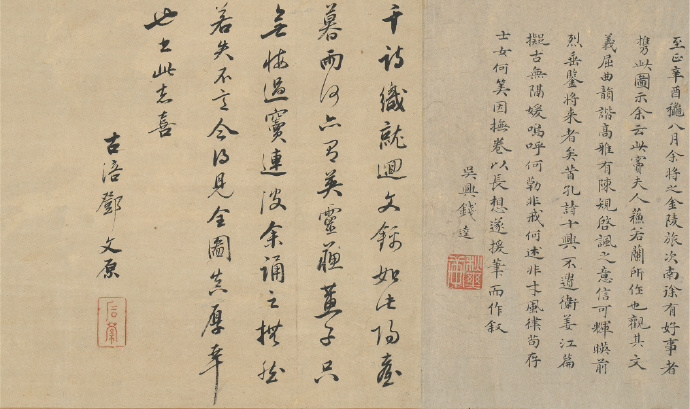 至正辛酉穐八月余將之金陵旅次南徐有好事者
携此圖示余云此竇夫人蘇若蘭所作也觀其文
義屈曲韻諧高雅有陳規啓諷之意信可輝暎前
烈垂鑒將來者矣昔孔詩十興不遺衛姜江篇
擬古無隔媛嗚呼何勒非戒何述非才風律苟存
士女何筭因撫卷以長想遂援筆而作叙
吳興錢逵
千詩織就迴文錦如此陽臺
暮雨何亦有英靈蘇蕙子只
無悔過竇連波余誦之然
若失不意今得見全圖真厚幸
也書此志喜
古涪鄧文原